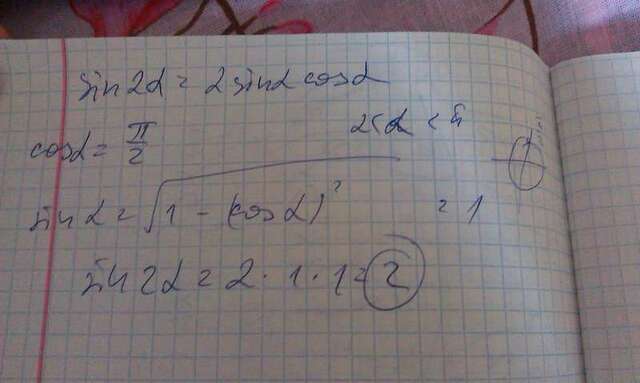 sin2α = 2 sinα cosα
cosα = π/2
sin α = √1 - (cos α)² = 1
sin 2α = 2 · 1 · 1 = 2